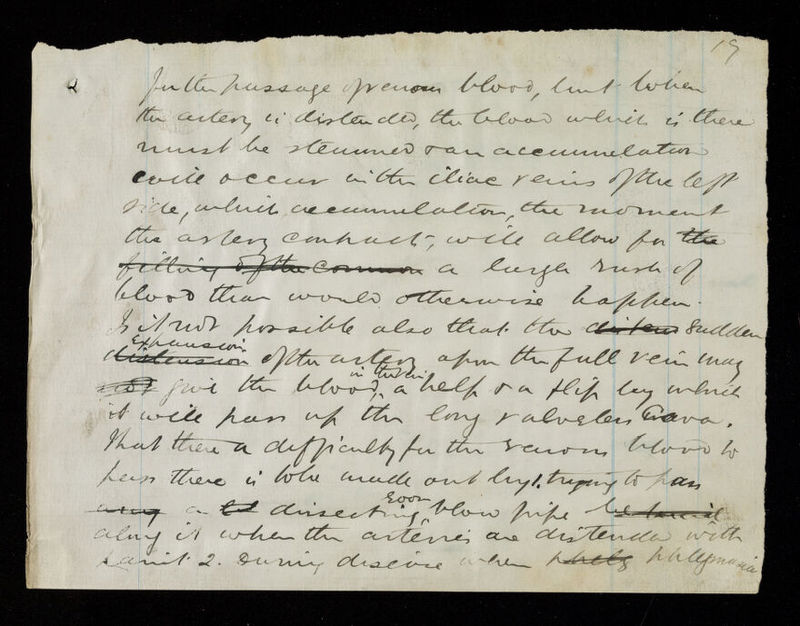 19
for the passage of venous blood, but when
the artery is distended, the blood which is there
must be stemmed & an accumulation
will occur in the iliac veins of the left
side, which accumulation, the moment
the artery contracts, will allow for the
filling of the common a larger rush of
blood than would otherwise happen.
Is it not possible also that the disten sudden
expansion
distension of the artery upon the full vein may
in the vein
not give the blood, a help & a flip by which
it will pass up the long valveless cava.
That there a difficulty for the venous blood to
pass there is to be made out by 1. trying to pass
a dissecting room blow pipe
along it when the arteries are distended with
paint. 2. During disease when phleg phlegmasia